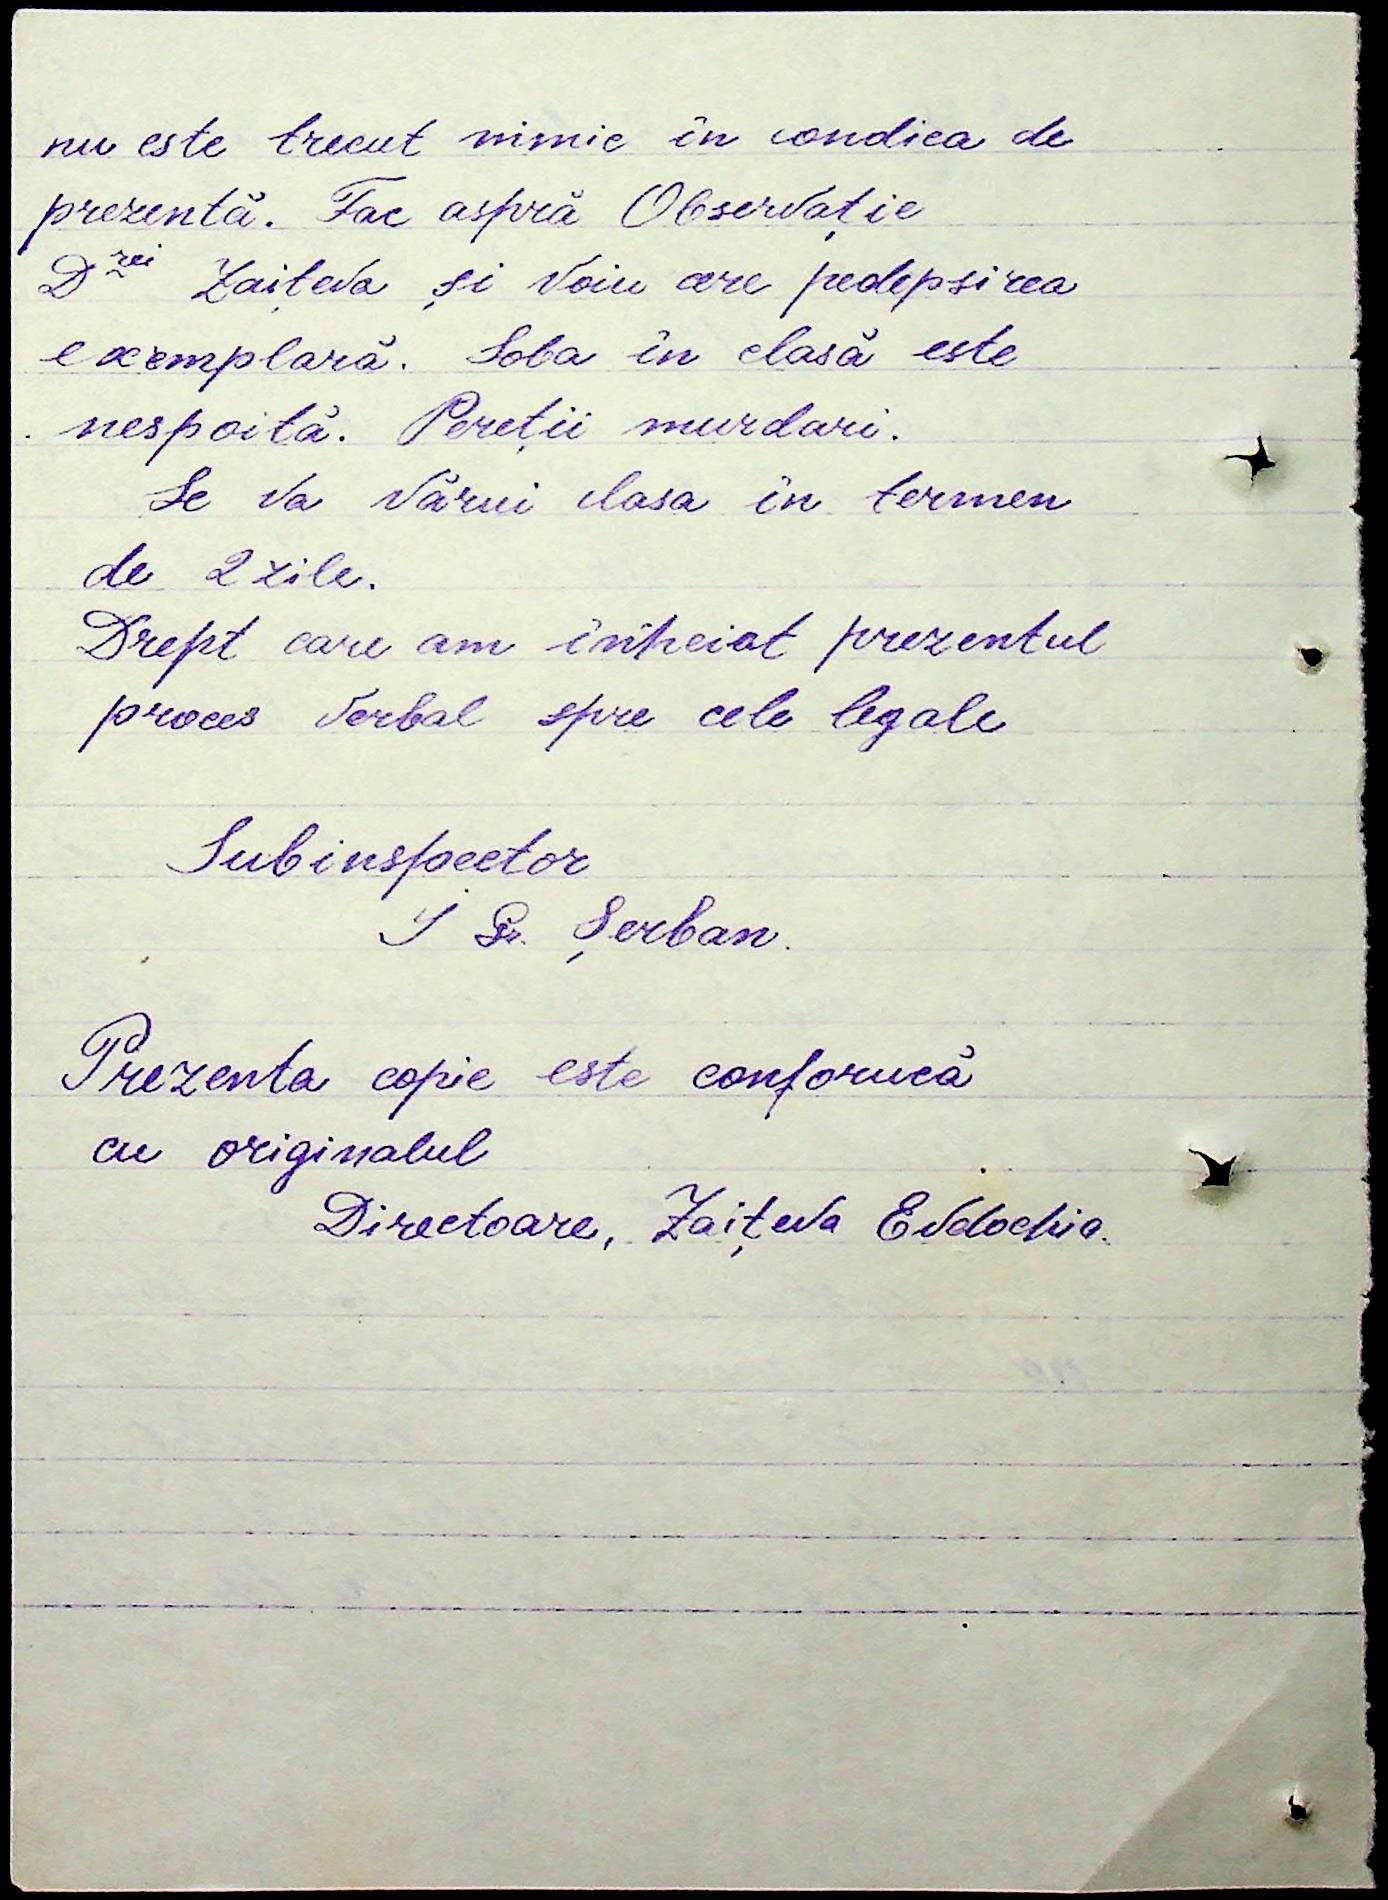 nu este trecut nimic în condica de
prezentă. Fac aspră Observație
Drei Zaițeva și voiu cere pedepsirea
exemplară. Soba în clasă este
nespoită. Pereții murdari.
Se va vărui clasa în termen
de 2 zile.
Drept care am înheiat prezentul
proces verbal spre cele legale
Subinspector
I Gr. Șerban.
Prezenta copie este conformă
cu originalul
Directoare, Zaițeva Evdochia.